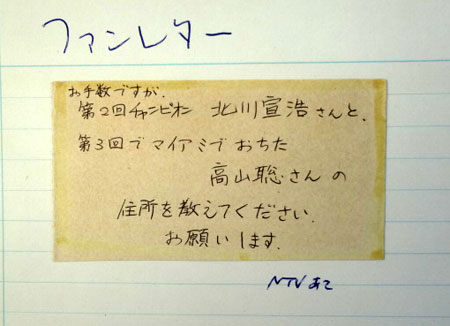 ファンレター
お手数ですが、
第2回チャンピオン 北川宣浩さんと、
第3回でマイアミでおちた
高山聡さんの
住所を教えてください.
お願いします.
NTVあて